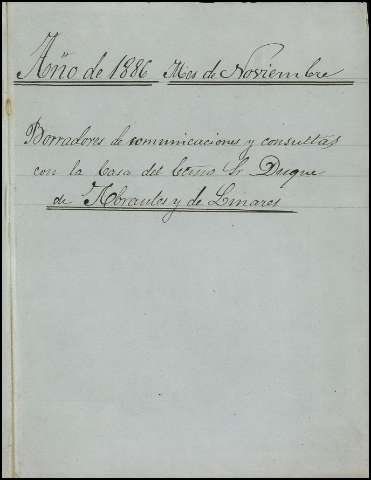 Año de 1886 Mes de Noviembre
Borradores de comunicaciones y consultas
con la Casa del Excmo. Sr. Duque
de Abrantes y de Linares